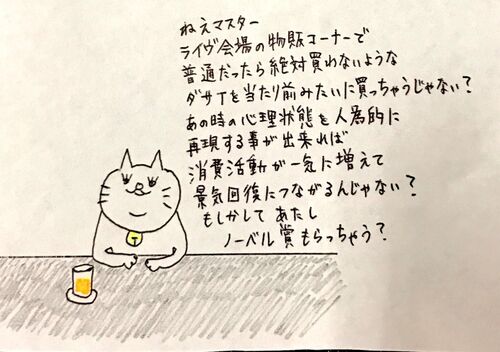 ねえマスター
ライヴ会場の物販コーナーで
普通だったら絶対買わないような
ダサTを当たり前みたいに買っちゃうじゃない?
あの時の心理状態を人為的に
再現する事が出来れば
消費活動が一気に増えて
景気回復につながるんじゃない?
もしかして あたし
ノーベル賞もらっちゃう?
T